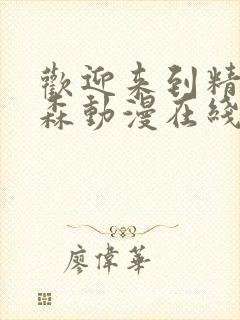 歡迎来到精
森動漫在綫
廖偉華